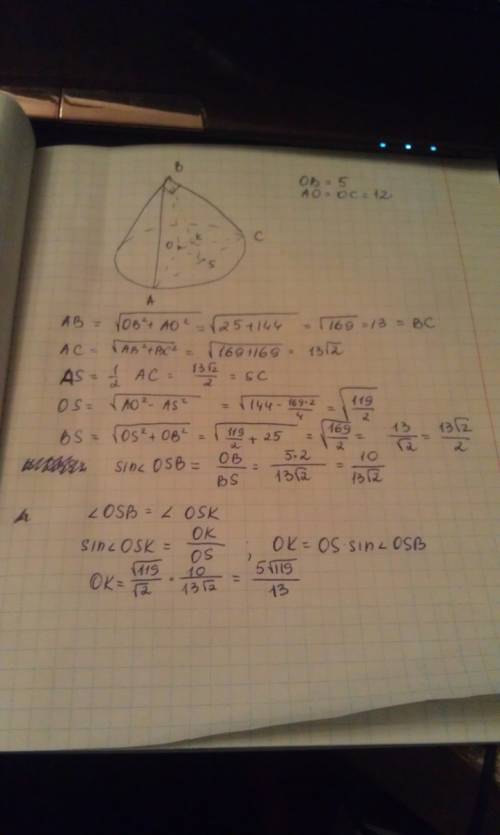 B
OB = 5
AO = OC = 12
O K C
S
A
AB = √(OB² + AO²) = √(25+144) = √169 = 13 = BC
AC = √(AB² + BC²) = √(169+169) = 13√2
AS = 1/2 AC = 13√2/2 = SC
OS = √(AO² - AS²) = √(144 - 169·2/4) = √(119/2)
BS = √(OS² + OB²) = √(119/2 + 25) = √(169/2) = 13/√2 = 13√2/2
sin∠OSB = OB/BS = 5·2/13√2 = 10/13√2
∠OSB = ∠OSK
sin∠OSK = OK/OS ; OK = OS·sin∠OSB
OK = √119/√2 · 10/13√2 = 5√119/13